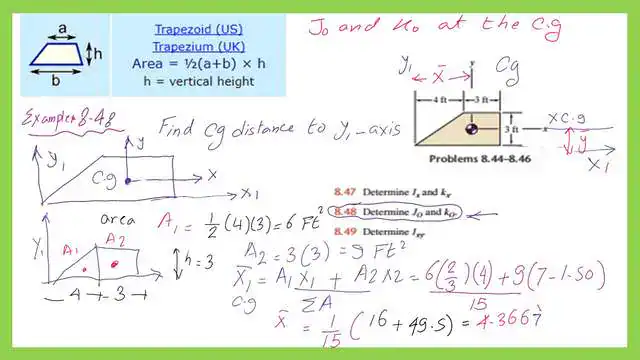 a
h
b
Trapezoid (US)
Trapezium (UK)
Area = ½(a+b) × h
h = vertical height
J₀ and K₀ at the C.g
Example 8-48
Find Cg distance to y₁-axis
y₁
x̄
y
Cg
4 ft
3 ft
3 ft
x
XC.g
y
X₁
Problems 8.44–8.46
y₁
y
C.g
X
X₁
8.47 Determine Iₓ and kₓ.
8.48 Determine J_O and k_O.
8.49 Determine I_xy.
area A₁ = 1/2 (4)(3) = 6 Ft²
Y₁
A₁
A2
h = 3
4
3
A2 = 3(3) = 9 FT²
X̄₁ = A₁X₁ + A2X2 / ΣA = 6(2/3)(4) + 9(7-1.50) / 15
C.g
x̄ = 1/15 (16 + 49.5) = 4.3667'